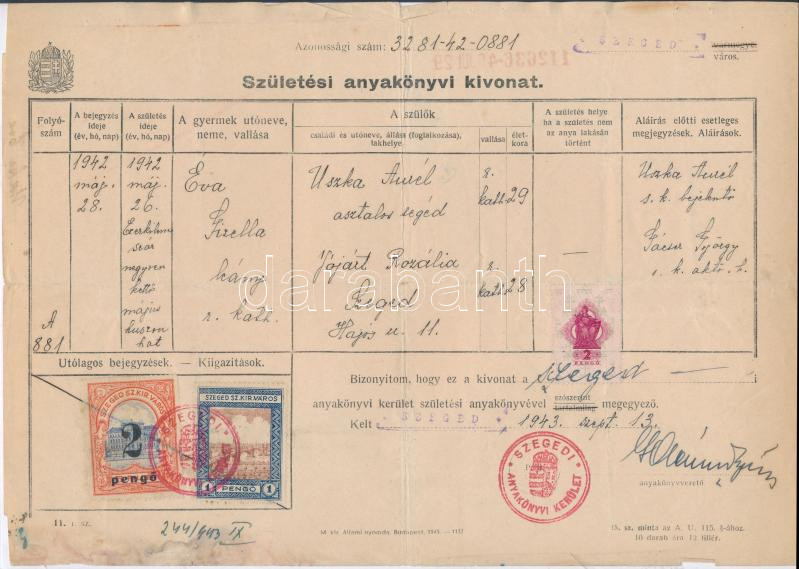 Azonossági szám: 3281-42-0881
SZEGED vármegye
város.
Születési anyakönyvi kivonat.
Folyó-
szám
A bejegyzés
ideje
(év, hó, nap)
A születés
ideje
(év, hó, nap)
A gyermek utóneve,
neme, vallása
A szülők
családi és utóneve, állása (foglalkozása),
lakhelye
vallása
élet-
kora
A születés helye
ha a születés nem
az anya lakásán
történt
Aláírás előtti esetleges
megjegyzések. Aláírások.
A
881
1942
máj.
28.
1942
máj.
26.
Ezerkilenc
száz
negyven
kettő
május
huszon
hat
Éva
Gizella
leány
r. kath.
Uszka Aurél
asztalos segéd
r.
kath. 29
Vojárt Rozália
Szeged
Hajós u. 11.
r.
kath. 28
—
Uszka Aurél
s. k. bejelentő
György
s. k.
darabanth
Utólagos bejegyzések. — Kiigazítások.
SZEGED SZ. KIR. VÁROS
2
pengő
SZEGED SZ. KIR. VÁROS
1 PENGŐ 1
SZEGEDI
ANYAKÖNYVI KERÜLET
2
PENGŐ
Bizonyítom, hogy ez a kivonat a szeged — i
anyakönyvi kerület születési anyakönyvével szószerint
tartalmilag megegyező.
Kelt SZEGED 1943. szept. 13.
SZEGEDI
ANYAKÖNYVI KERÜLET
anyakönyvvezető
11. r. sz.
244/943 IX
M. kir. Állami nyomda, Budapest, 1941. — 1137
15. sz. minta az A. U. 115. §-ához.
10 darab ára 12 fillér.